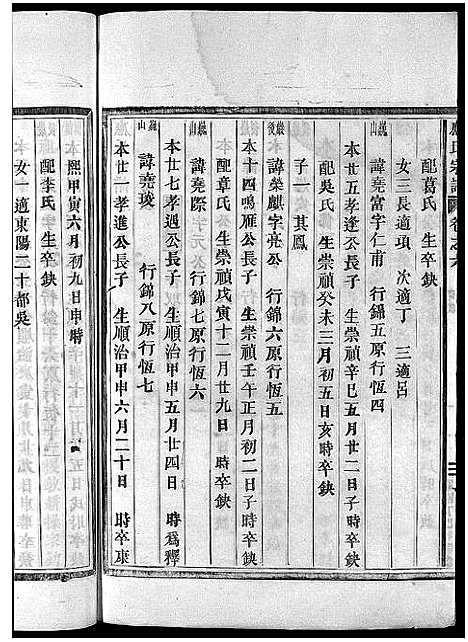 氏宗譜 卷之六
配葛氏 生卒缺
女三長適項 次適丁 三適呂
巖山 諱堯富字仁甫 行錦五原行恆四
本廿五孝逢公長子 生崇禎辛巳五月廿二日子時卒缺
配吳氏 生崇禎癸未三月初五日亥時卒缺
子一 其鳳
巖後 諱榮麒字亮公 行錦六原行恆五
本十四鳴雁公長子 生崇禎壬午正月初二日子時卒缺
配章氏 生崇禎戊寅十二月廿九日 時卒缺
巖 諱堯際字元公 行錦七原行恆六
本廿七孝遇公長子 生順治甲申五月廿四日 時爲釋
巖山 諱堯琰 行錦八原行恆七
本廿一孝進公長子 生順治甲申六月二十日 時卒康
熙甲寅六月初九日申時
配李氏 生卒缺
女一適東陽二十都吳